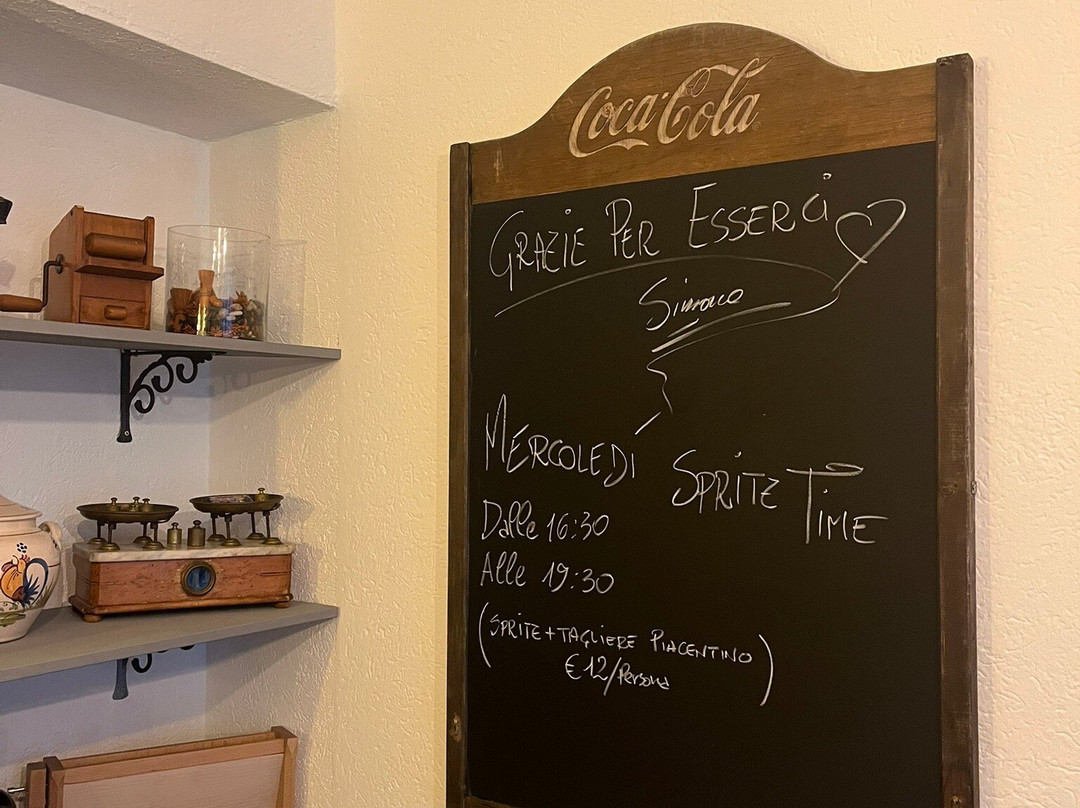 Coca-Cola
GRAZIE PER ESSERCi
MERCOLEDÌ
SPRITZ TIME
Dalle 16:30
Alle 19:30
(SPRITZ+TAGLIERE PIACENTINO)
€12/Persona